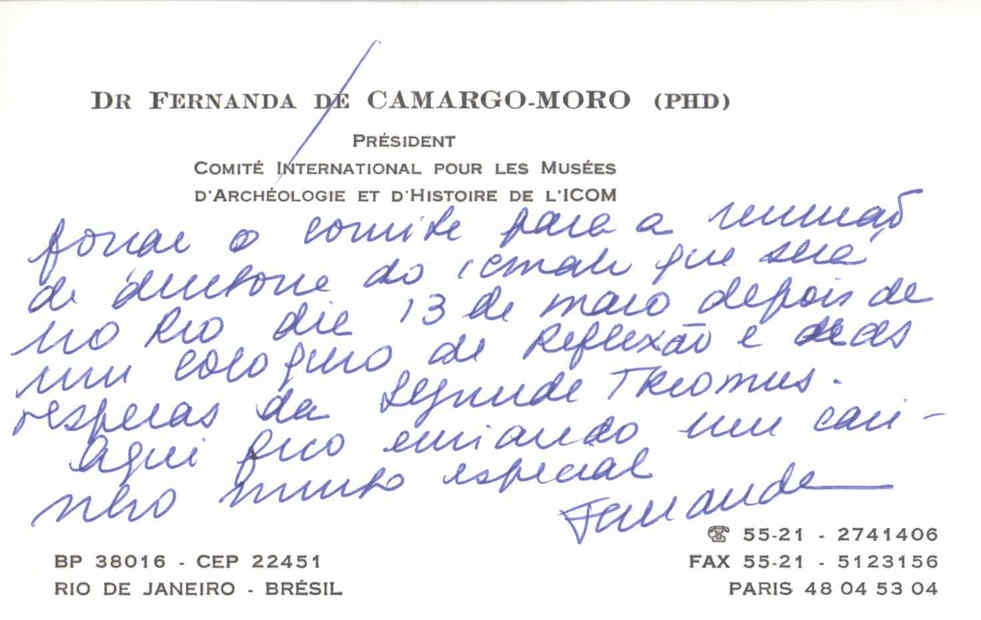 DR FERNANDA DE CAMARGO-MORO (PHD)
PRÉSIDENT
COMITÉ INTERNATIONAL POUR LES MUSÉES
D'ARCHÉOLOGIE ET D'HISTOIRE DE L'ICOM
o comite para a reunião
de do que será
no Rio dia 13 de maio depois de
um coloquio de Reflexão e das
vesperas da Segunda
Aqui fico enviando um cari-
nho muito especial
Fernanda
55-21 - 2741406
BP 38016 - CEP 22451
FAX 55-21 - 5123156
RIO DE JANEIRO - BRÉSIL
PARIS 48 04 53 04